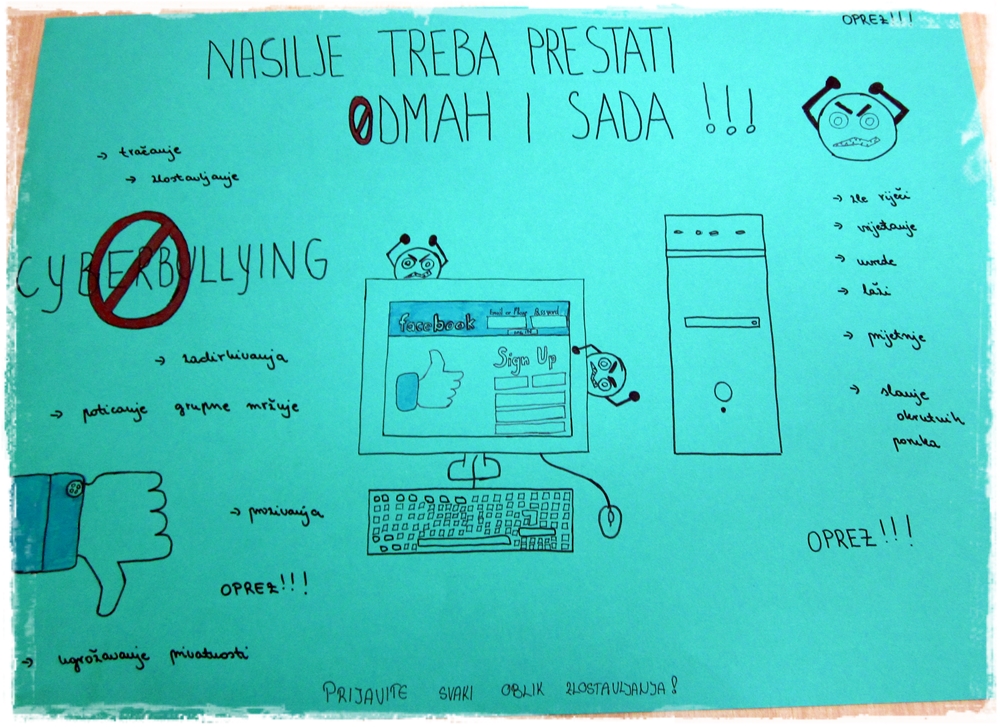 OPREZ!!!
NASILJE TREBA PRESTATI
ODMAH I SADA !!!
→ tračanje
→ zlostavljanje
CYBERBULLYING
→ zadirkivanja
→ poticanje grupne mržnje
→ prozivanja
OPREZ!!!
→ ugrožavanje privatnosti
facebook
Email or Phone Password
Sign Up
→ zle riječi
→ vrijeđanje
→ uvrede
→ laži
→ prijetnje
→ slanje
okrutnih
poruka
OPREZ!!!
PRIJAVITE SVAKI OBLIK ZLOSTAVLJANJA!